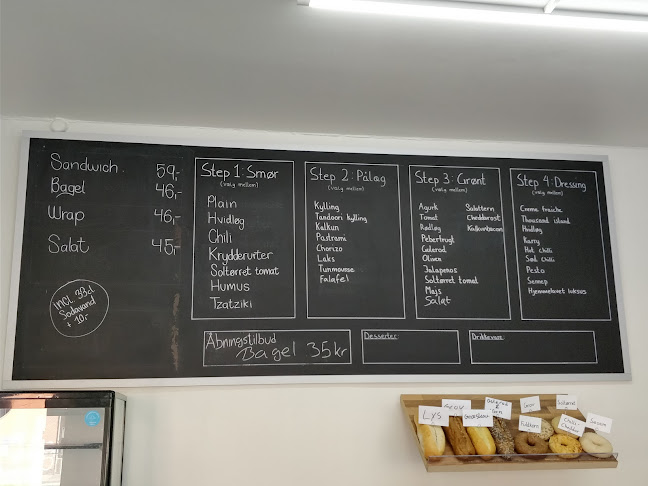 Sandwich 59,-
Bagel 46,-
Wrap 46,-
Salat 45,-
Incl. 33cl
Sodavand
+ 10,-
Step 1: Smør
(vælg mellem)
Plain
Hvidløg
Chili
Krydderurter
Soltørret tomat
Humus
Tzatziki
Step 2: Pålæg
(vælg mellem)
Kylling
Tandoori kylling
Kalkun
Pastrami
Chorizo
Laks
Tunmousse
Falafel
Step 3: Grønt
(vælg mellem)
Agurk
Tomat
Rødløg
Peberfrugt
Gulerod
Oliven
Jalapenos
Soltørret tomat
Majs
Salat
Salatost
Cheddarost
Kalkunbacon
Step 4: Dressing
(vælg mellem)
Creme fraiche
Thousand island
Hvidløg
Karry
Hot chili
Sød chili
Pesto
Sennep
Hjemmelavet luksus
Åbningstilbud
Bagel 35kr
Desserter:
Drikkevare:
Lys
Grov
Fuldkorn
Sesam